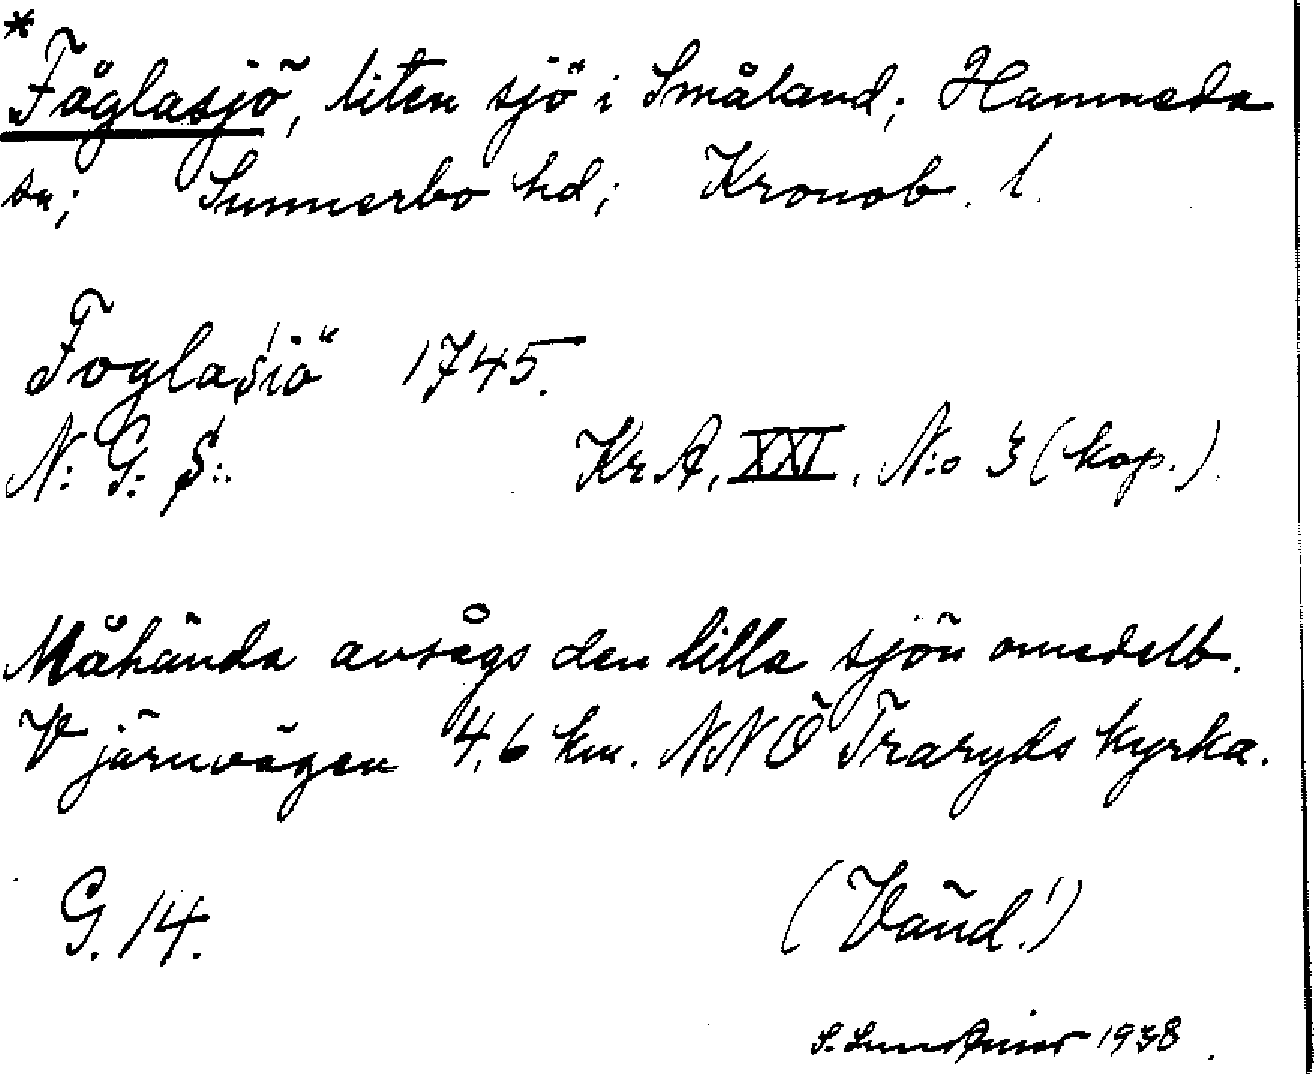 * Fåglasjö, liten sjö i Småland; Hamneda
sn; Sunnerbo hd; Kronob. l.
Foglasiö 1745.
N: G: S:. Kr. A, XXI, N:o 3 (kop.).
Måhända avsågs den lilla sjön omedelb.
V järnvägen 4,6 km. NNÖ Traryds kyrka.
G. 14. (Vänd!)
S. 1938.